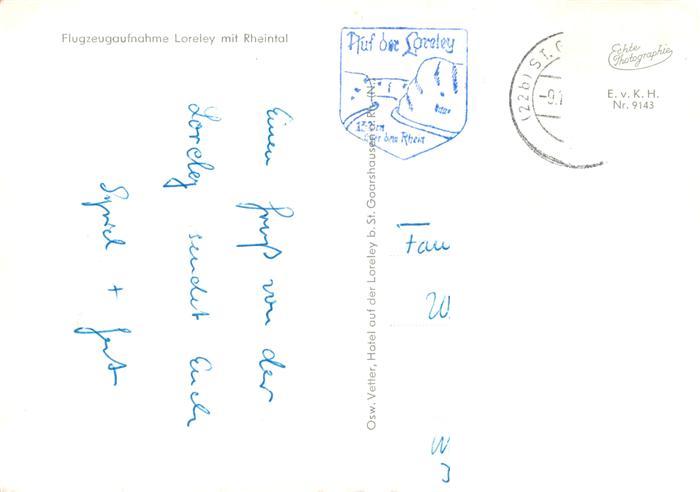 Flugzeugaufnahme Loreley mit Rheintal
Auf der Loreley
132 m
über dem Rhein
(22b) ST. G
-9.
Echte
Photographie
E. v. K. H.
Nr. 9143
Osw. Vetter, Hotel auf der Loreley b. St. Goarshausen a. Rhein
Einen Gruß von der
Loreley sendet Euch
Sigrid + Gert
Frau
W.
W